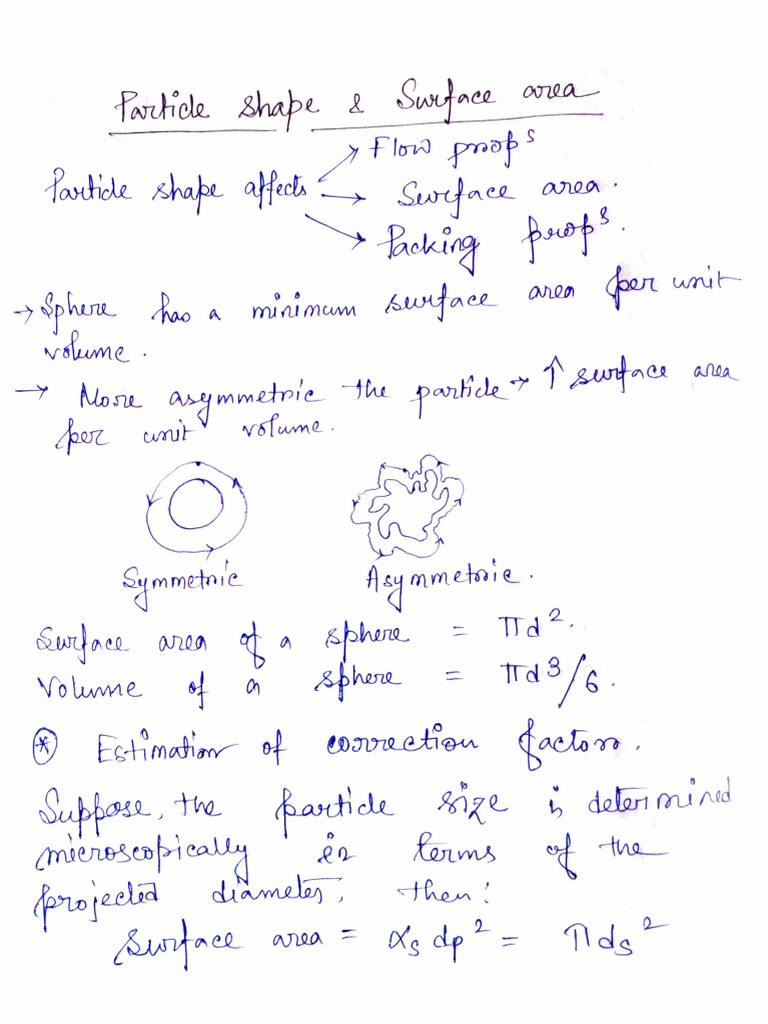 Particle shape & Surface area
Particle shape affects → Flow propˢ
→ Surface area.
→ Packing propˢ.
→ Sphere has a minimum surface area per unit
volume.
→ More asymmetric the particle → ↑ surface area
per unit volume.
Symmetric Asymmetric.
Surface area of a sphere = πd².
Volume of a sphere = πd³/6.
* Estimation of correction factors.
Suppose, the particle size is determined
microscopically in terms of the
projected diameter, then:
Surface area = αₛ dp² = πdₛ²